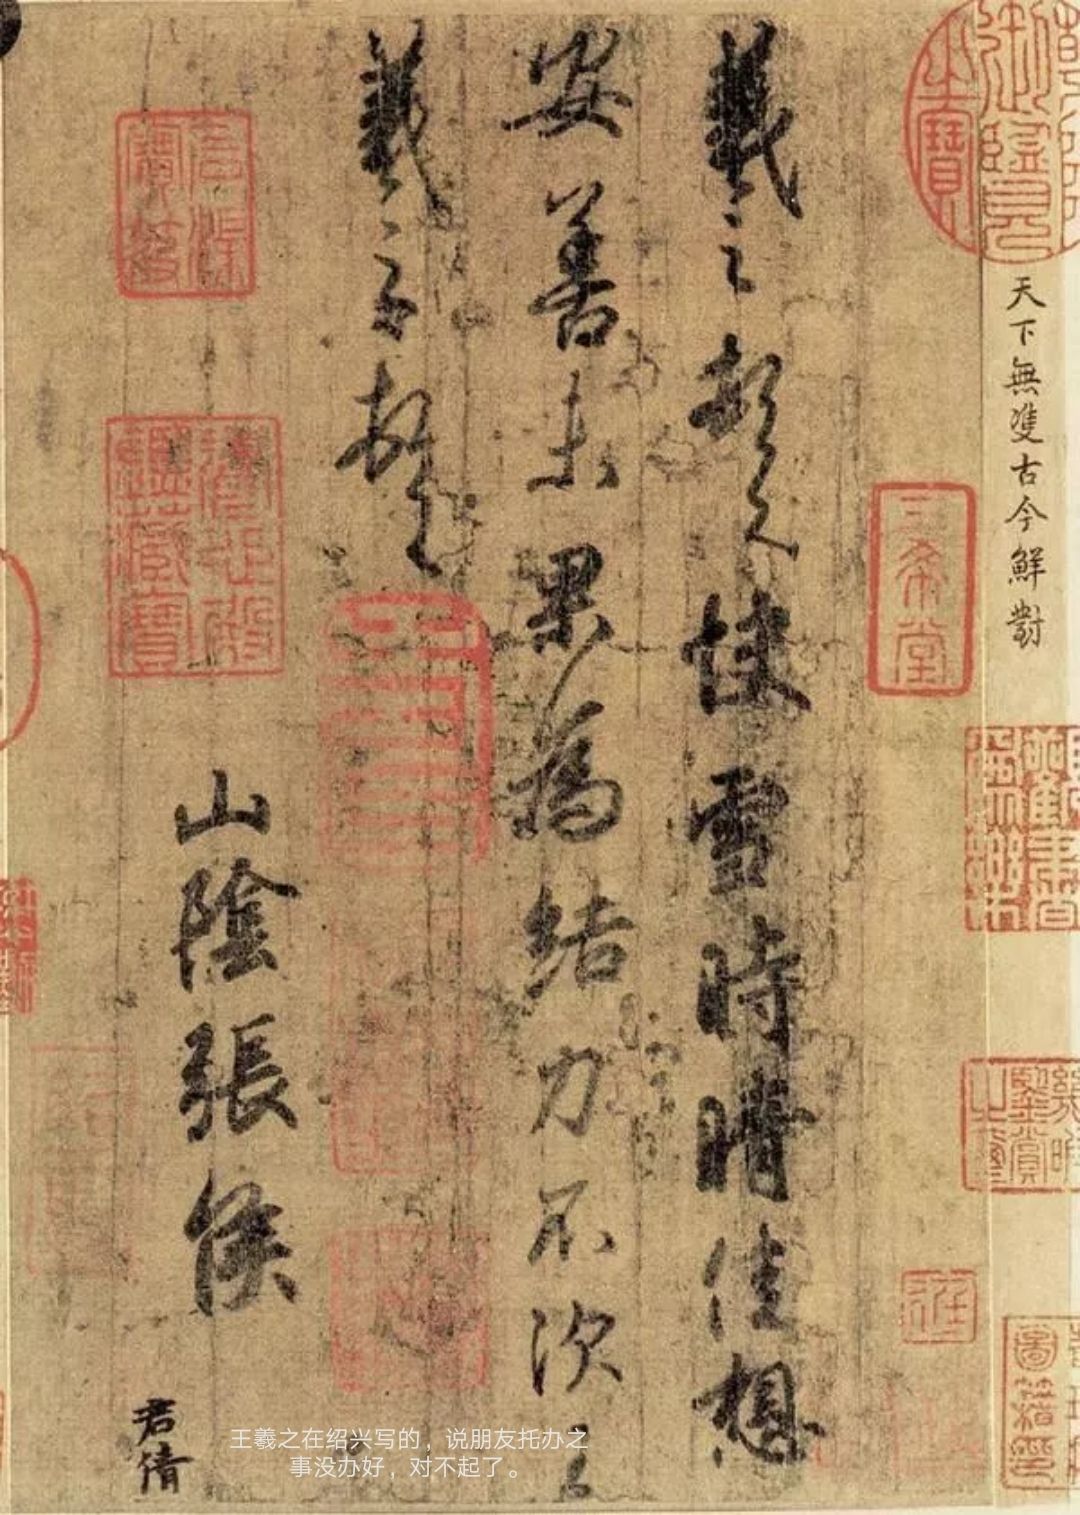 天下無雙古今鮮對
三希堂
羲之頓首快雪時晴佳想
安善未果為結力不次王
羲之頓首
山陰張侯
養心殿鑑藏寶
君倩
王羲之在绍兴写的，说朋友托办之
事没办好，对不起了。